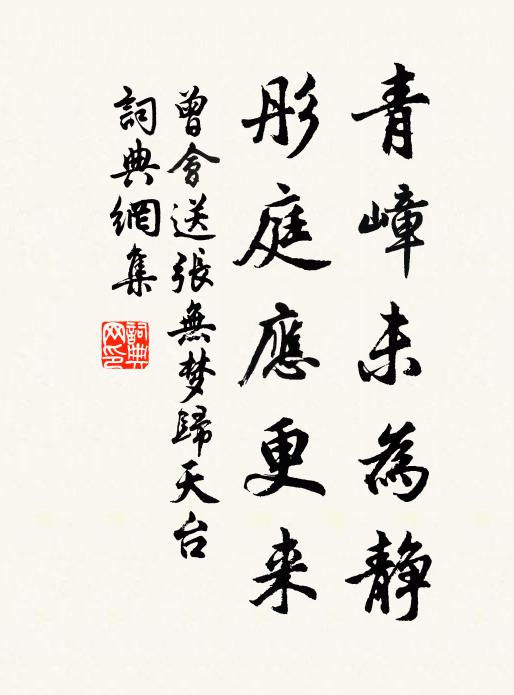 青嶂未為静
彤庭應更来
曾會送張無梦歸天台
詞典網集
詞典網印